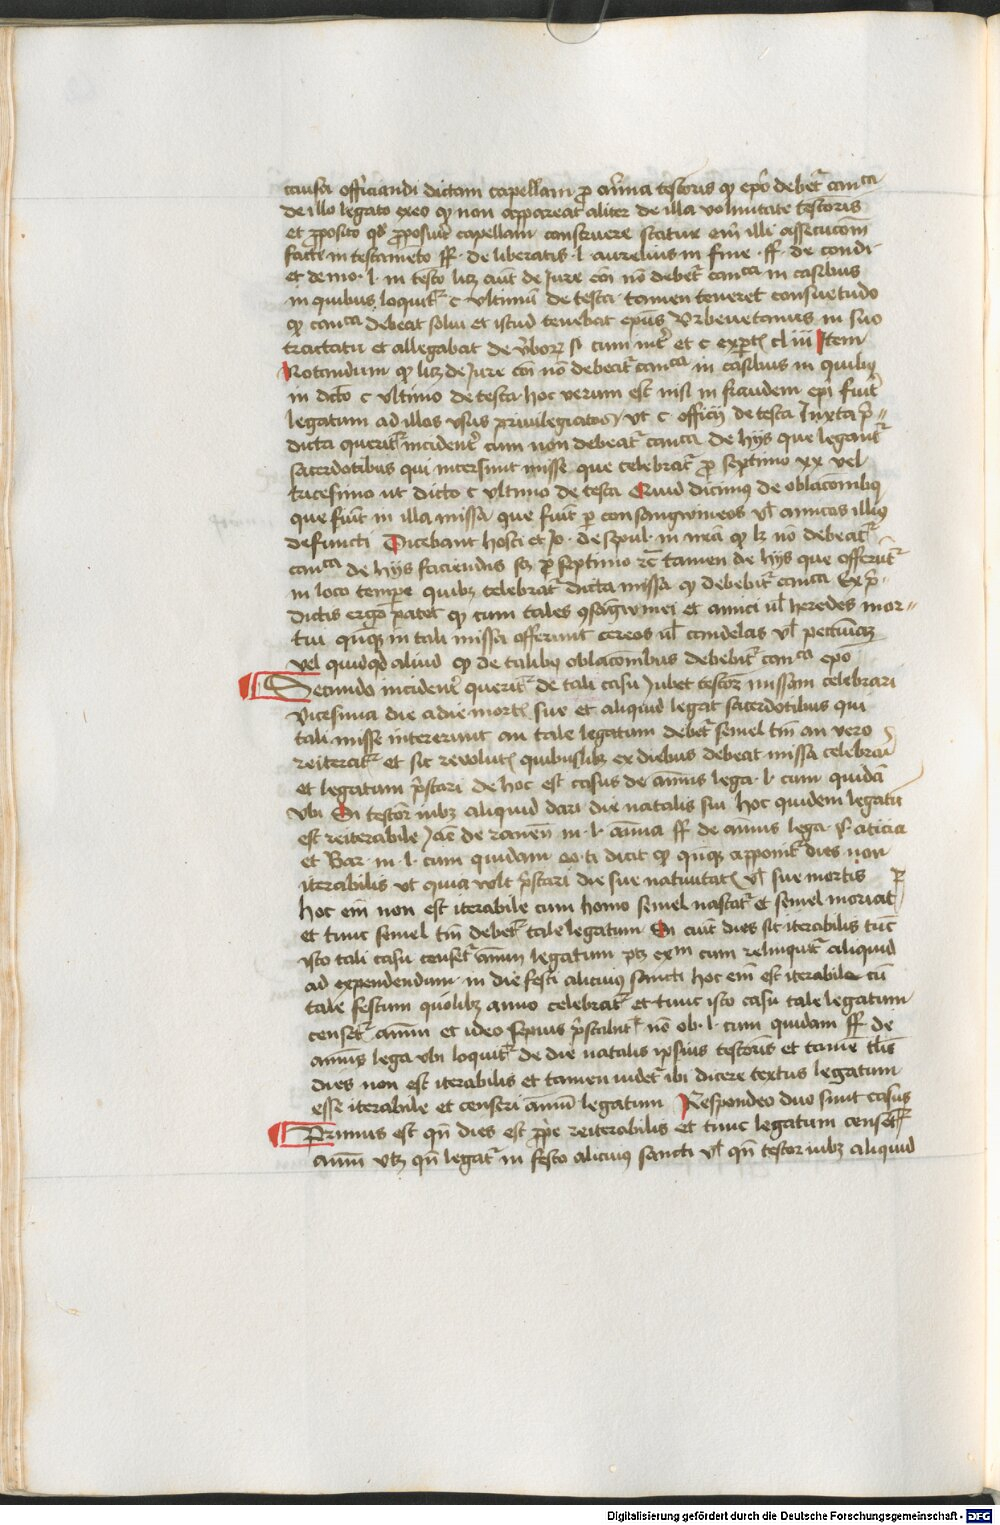 causa officiandi dictam capellam p aīma testoris qp epō debet̄ canca
de illo legato exeo qp non appareat aliter de illa voluntate testoris
et pposito qd pposuit capellam construere statur em̄ illi assecucōm
facte in testamēto ff. de liberatis l. aurelius in fine. ff. de condi.
et demo. l. in testo licz aūt de Jure cōi nō debet̄ canca in casibus
in quibus loquit̄ c vltimū de testa. tamen teneret consuetudo
qp canca debeat solui et istud tenebat epūs Vrbeuetanus in suo
tractatu et allegabat de v̄borz si cum int̄ et c expt̄ cl iii Item
Notandum qp licz de Jure cōi nō debeat̄ canca in casibus in quibus
in dcō c vltimo de testa. hoc verum est nisi in fraudem epī fuit
legatum ad illos vsus priuilegiatos vt c officij de testa Juxta p̄-
dicta querit̄ incident̄ cum non debeat̄ canca de hijs que legant̄
sacerdotibus qui intersunt misse que celebrat̄ p septimo xx vel
tricesimo ut dicto c vltimo de testa Quid dicimus de oblacōnibus
que fiūt in illa missa que fiūt p consangwineos vl̄ amicos illius
defuncti Dicebant hosti et Jo. de szpul. in mēā qp lz nō debeat̄
canca de hijs faciendis sz p septimo rc̄ tamen de hijs que offerūt̄
in loco tempe quibz celebrat̄ dicta missa qp debebit̄ canca Ex p̄-
dictis ergo patet qp cum tales 9sāgwinei et amici vl̄ heredes mor-
tui qn̄qz in tali missa offerunt cereos vl̄ candelas vl̄ pecūiaz
vel quidqd aliud qp de talibz oblacōnibus debebit̄ canca epō
Secundo incident̄ querit̄ de tali casu Jubet testor missam celebrari
vicesima die a die mort̄ sue et aliquid legat sacerdotibus qui
tali misse intererunt an tale legatum debet̄ semel tm̄ an vero
reiterat̄ et sit reuolut̄ quibuslibz ex diebus debeat missa celebrari
et legatum p̄stari de hoc est casus de annuis lega. l. cum quidā
vbi Si testor iubz aliquid dari die natalis sui hoc quidem legatū
est reiterabile Jac de rauen̄ in l. annua ff de annuis lega. §. aticia
et Bar. in l. cum quidam co. ti dicit qp qn̄qz apponit̄ dies non
iterabilis vt quia vult p̄stari die sue natiuitat̄ vl̄ sue mortis p
hoc em̄ non est iterabile cum homo semel nascat̄ et semel moriat̄
et tunc semel tm̄ debet̄ tale legatum Si aūt dies sit iterabilis tūc
isto tali casu censet̄ annuū legatum ptz exm cum relinquit̄ aliquid
ad expendendum in die festi alicuius sancti hoc em̄ est iterabile cū
tale festum quolibz anno celebrat̄ et tunc isto casu tale legatum
censet̄ annūu et ideo sepius p̄stabit̄ nō ob. l. cum quidam ff de
annuis lega vbi loquit̄ de die natalis ipsius testoris et tamē tl̄is
dies non est iterabilis et tamen videt̄ ibi dicere textus legatum
esse iterabile et censeri annūu legatum Respondeo duo sunt casus
Primus est qn̄ dies est ppe reiterabilis et tunc legatum censet̄
annūu vtz qn̄ legat̄ in festo alicuius sancti vl̄ qn̄ testor iubz aliquid
Digitalisierung gefördert durch die Deutsche Forschungsgemeinschaft - DFG